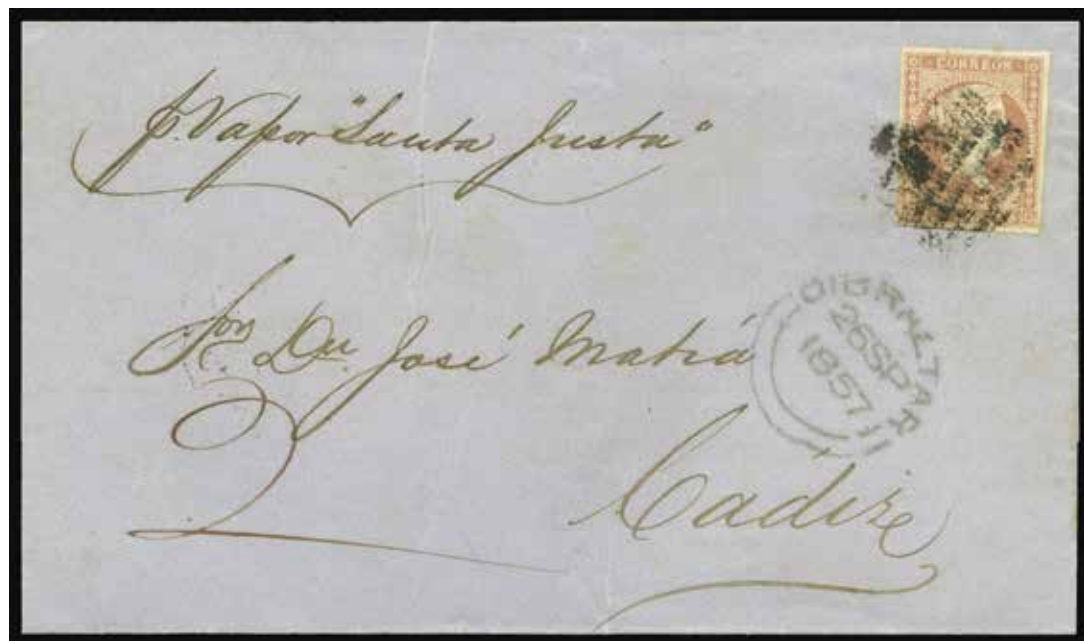 CORREOS
p. Vapor "Santa Justa"
Sor. Dn. José Matiá
GIBRALTAR
26SP
1857
Cádiz